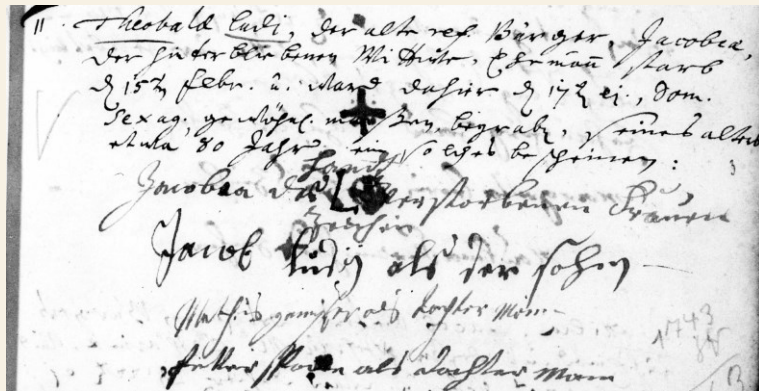 11. Theobald Ludi, der alte ref. Bürger, Jacobea,
der hinterbliebenen Wittwe, Ehemañ, starb
d 15ten febr. u. ward dahier d 17ten ej., Dom.
Sexag. gewöhnl. maßen, begrabn, seines alters
etwa 80 Jahr, ein solches bescheinen:
Jacobea das verstorbenen Frauen
Hand
Zeichen
Jacob Ludij als der sohn
Mathis als dochter Mann
Petter als dochter Mann
1743